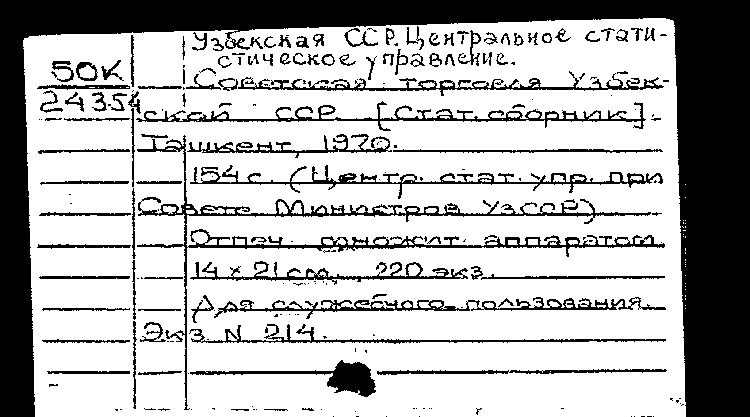 Узбекская ССР. Центральное стати-
стическое управление.
50К
24354
Советская торговля Узбек-
ской ССР. [Стат. сборник].
Ташкент, 1970.
154 с. (Центр. стат. упр. при
Совете Министров УзССР)
Отпеч. множит. аппаратом
14 x 21 см., 220 экз.
Для служебного пользования.
Экз N 214.